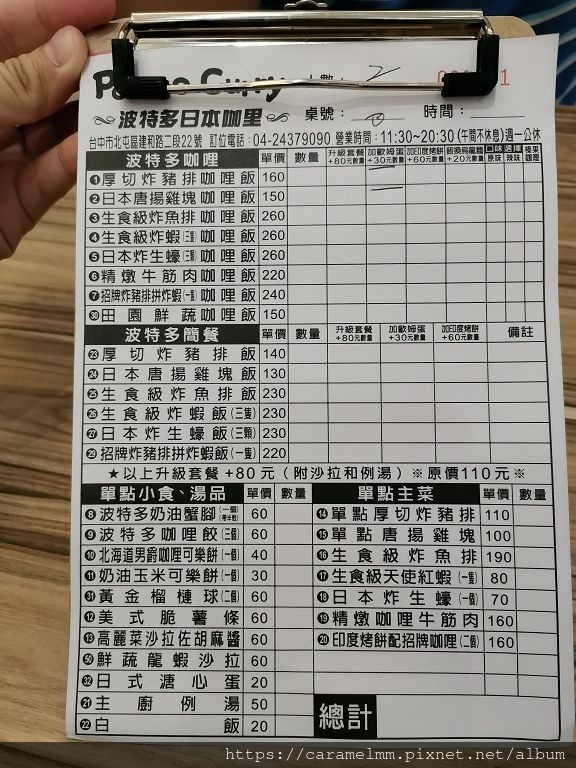 Curry 人數: 2
波特多日本咖哩 桌號: 時間:
台中市北屯區建和路二段22號 訂位電話:04-24379090 營業時間:11:30~20:30(午間不休息)週一公休
波特多咖哩 單價 數量 升級套餐+80元數量 加歐姆蛋+30元數量 加印度烤餅+60元數量 飯換烏龍麵+20元數量 口味選擇 原味 辣味 椰果咖哩
❶厚切炸豬排咖哩飯 160
❷日本唐揚雞塊咖哩飯 150
❸生食級炸魚排咖哩飯 260
❹生食級炸蝦(三隻)咖哩飯 260
❺日本炸生蠔(三顆)咖哩飯 260
❻精燉牛筋肉咖哩飯 220
❼招牌炸豬排拼炸蝦(一隻)咖哩飯 240
㉚田園鮮蔬咖哩飯 150
波特多簡餐 單價 數量 升級套餐+80元數量 加歐姆蛋+30元數量 加印度烤餅+60元數量 備註
㉓厚切炸豬排飯 140
㉔日本唐揚雞塊飯 130
㉕生食級炸魚排飯 230
㉖生食級炸蝦飯(三隻) 230
㉗日本炸生蠔飯(三顆) 230
㉙招牌炸豬排拼炸蝦飯(一隻) 220
★以上升級套餐+80元(附沙拉和例湯)※原價110元※
單點小食、湯品 單價 數量
❽波特多奶油蟹腳 60
❾波特多咖哩餃(三個) 60
❿北海道男爵咖哩可樂餅(一個) 40
⓫奶油玉米可樂餅(一個) 30
㉛黃金榴槤球(二個) 60
⓬美式脆薯條 60
⓭高麗菜沙拉佐胡麻醬 60
㊿鮮蔬龍蝦沙拉 60
㉜日式溏心蛋 20
㉑主廚例湯 50
㉒白飯 20
單點主菜 單價 數量
⓮單點厚切炸豬排 110
⓯單點唐揚雞塊 100
⓰生食級炸魚排 190
⓱生食級天使紅蝦(一隻) 80
⓲日本炸生蠔(一顆) 70
⓳精燉咖哩牛筋肉 160
⓴印度烤餅配招牌咖哩(二個) 160
總計
https://caramelmm.pixnet.net/album